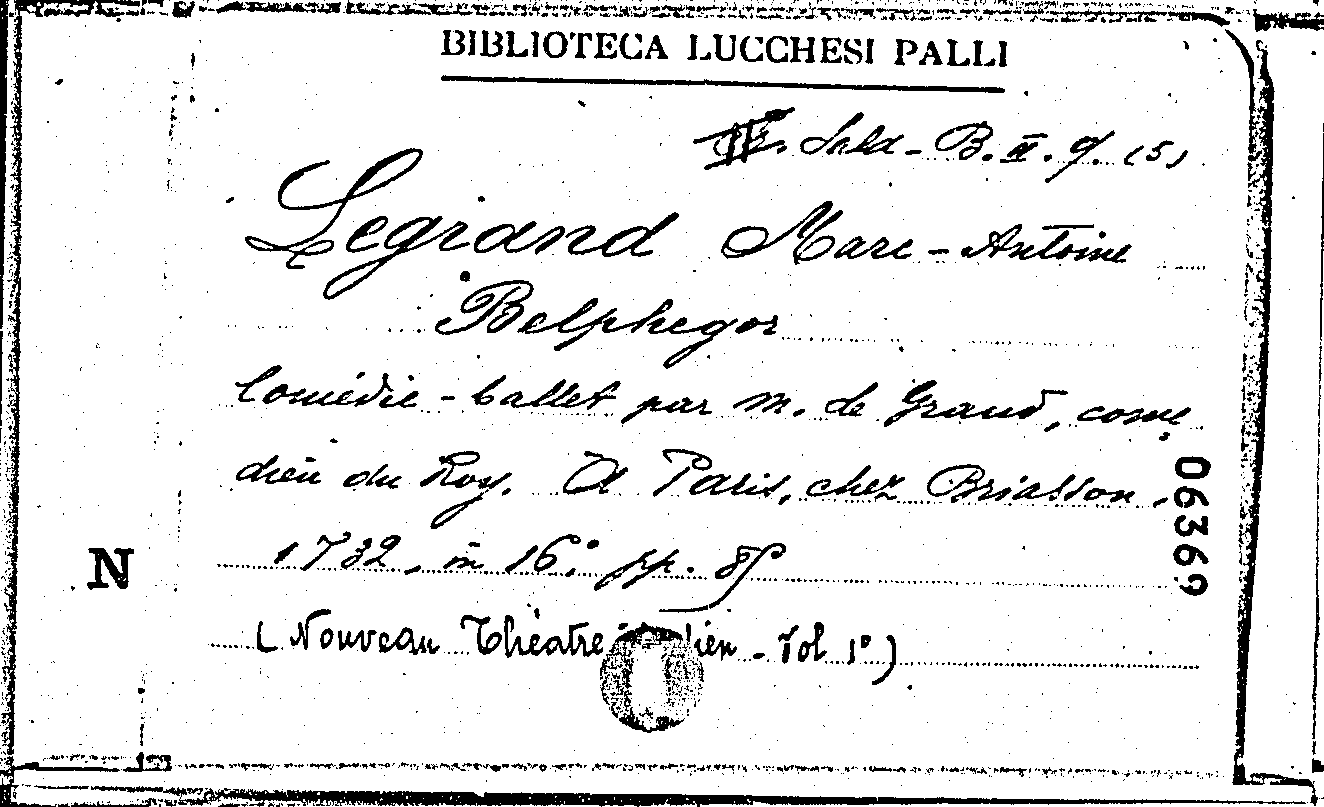 BIBLIOTECA LUCCHESI PALLI
Sala - B. II. 9. (5)
Legrand Marc-Antoine
Belphegor
Comédie-ballet par m. le Grand, comé
dien du Roy. A Paris, chez Briasson,
1732, in 16.° pp. 85
N
06369
(Nouveau Théatre - Vol 1°)